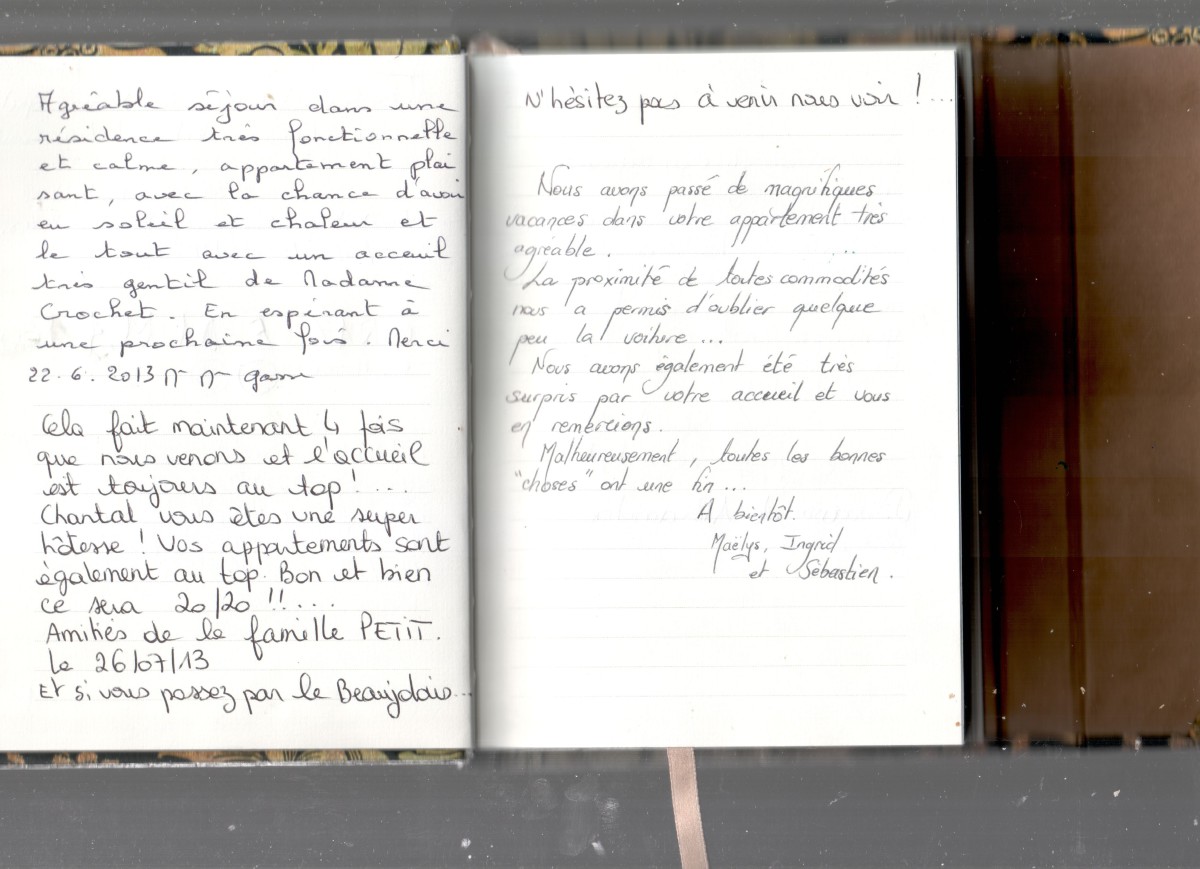 Agréable séjour dans une
résidence très fonctionnelle
et calme, appartement plai
sant, avec la chance d'avoir
eu soleil et chaleur et
le tout avec un acceuil
très gentil de Madame
Crochet. En espérant à
une prochaine fois. Merci
22.6.2013
Cela fait maintenant 4 fois
que nous venons et l'accueil
est toujours au top!....
Chantal vous êtes une super
hôtesse! Vos appartements sont
également au top. Bon et bien
ce sera 20/20 !!....
Amitiés de la famille PETIT.
le 26/07/13
Et si vous passez par le Beaujolais...
N'hésitez pas à venir nous voir !...
Nous avons passé de magnifiques
vacances dans votre appartement très
agréable.
La proximité de toutes commodités
nous a permis d'oublier quelque
peu la voiture...
Nous avons également été très
surpris par votre accueil et vous
en remercions.
Malheureusement, toutes les bonnes
"choses" ont une fin...
A bientôt.
Maëlys, Ingrid
et Sébastien.